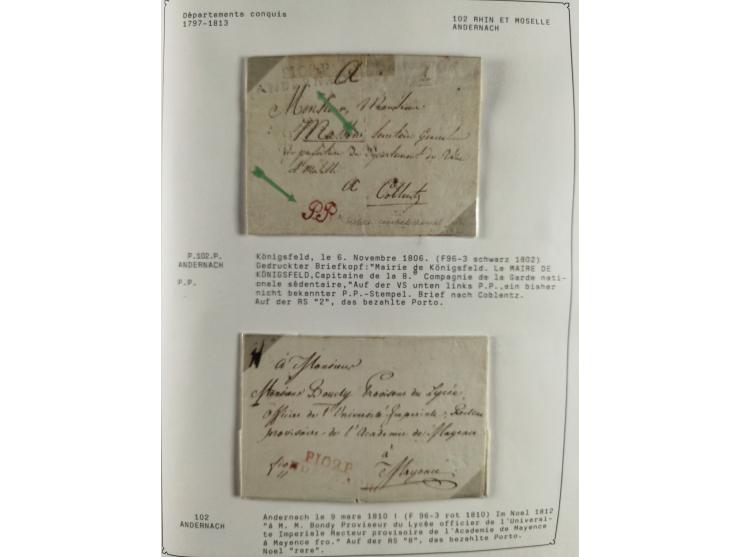 Départements conquis
1797-1813
102 RHIN ET MOSELLE
ANDERNACH
P102P
ANDERNACH
A
Monsieur, Monsieur
Secretaire General
de prefecture du Departement de Rhin
et Moselle
a Coblentz
P.P.
P.102.P.
ANDERNACH
P.P.
Königsfeld, le 6. Novembre 1806. (F96-3 schwarz 1802)
Gedruckter Briefkopf:"Mairie de Königsfeld. Le MAIRE DE
KÖNIGSFELD,Capitaine de la 8.e Compagnie de la Garde nati-
onale sédentaire,"Auf der VS unten links P.P.,ein bisher
nicht bekannter P.P.-Stempel. Brief nach Coblentz.
Auf der RS "2", das bezahlte Porto.
à Monsieur
Monsieur Proviseur du Lycée
Officier de l'Université Imperiale, Recteur
provisoire de l'Academie de Mayence
à
P.102.P.
Mayence
102
ANDERNACH
Andernach le 9 mars 1810 ! (F 96-3 rot 1810) Im Noel 1812
"à M. M. Bondy Proviseur du Lycée officier de l'Universi-
té Imperiale Recteur provisoire de l'Academie de Mayence
à Mayence fro." Auf der RS "8", das bezahlte Porto.
Noel "rare".